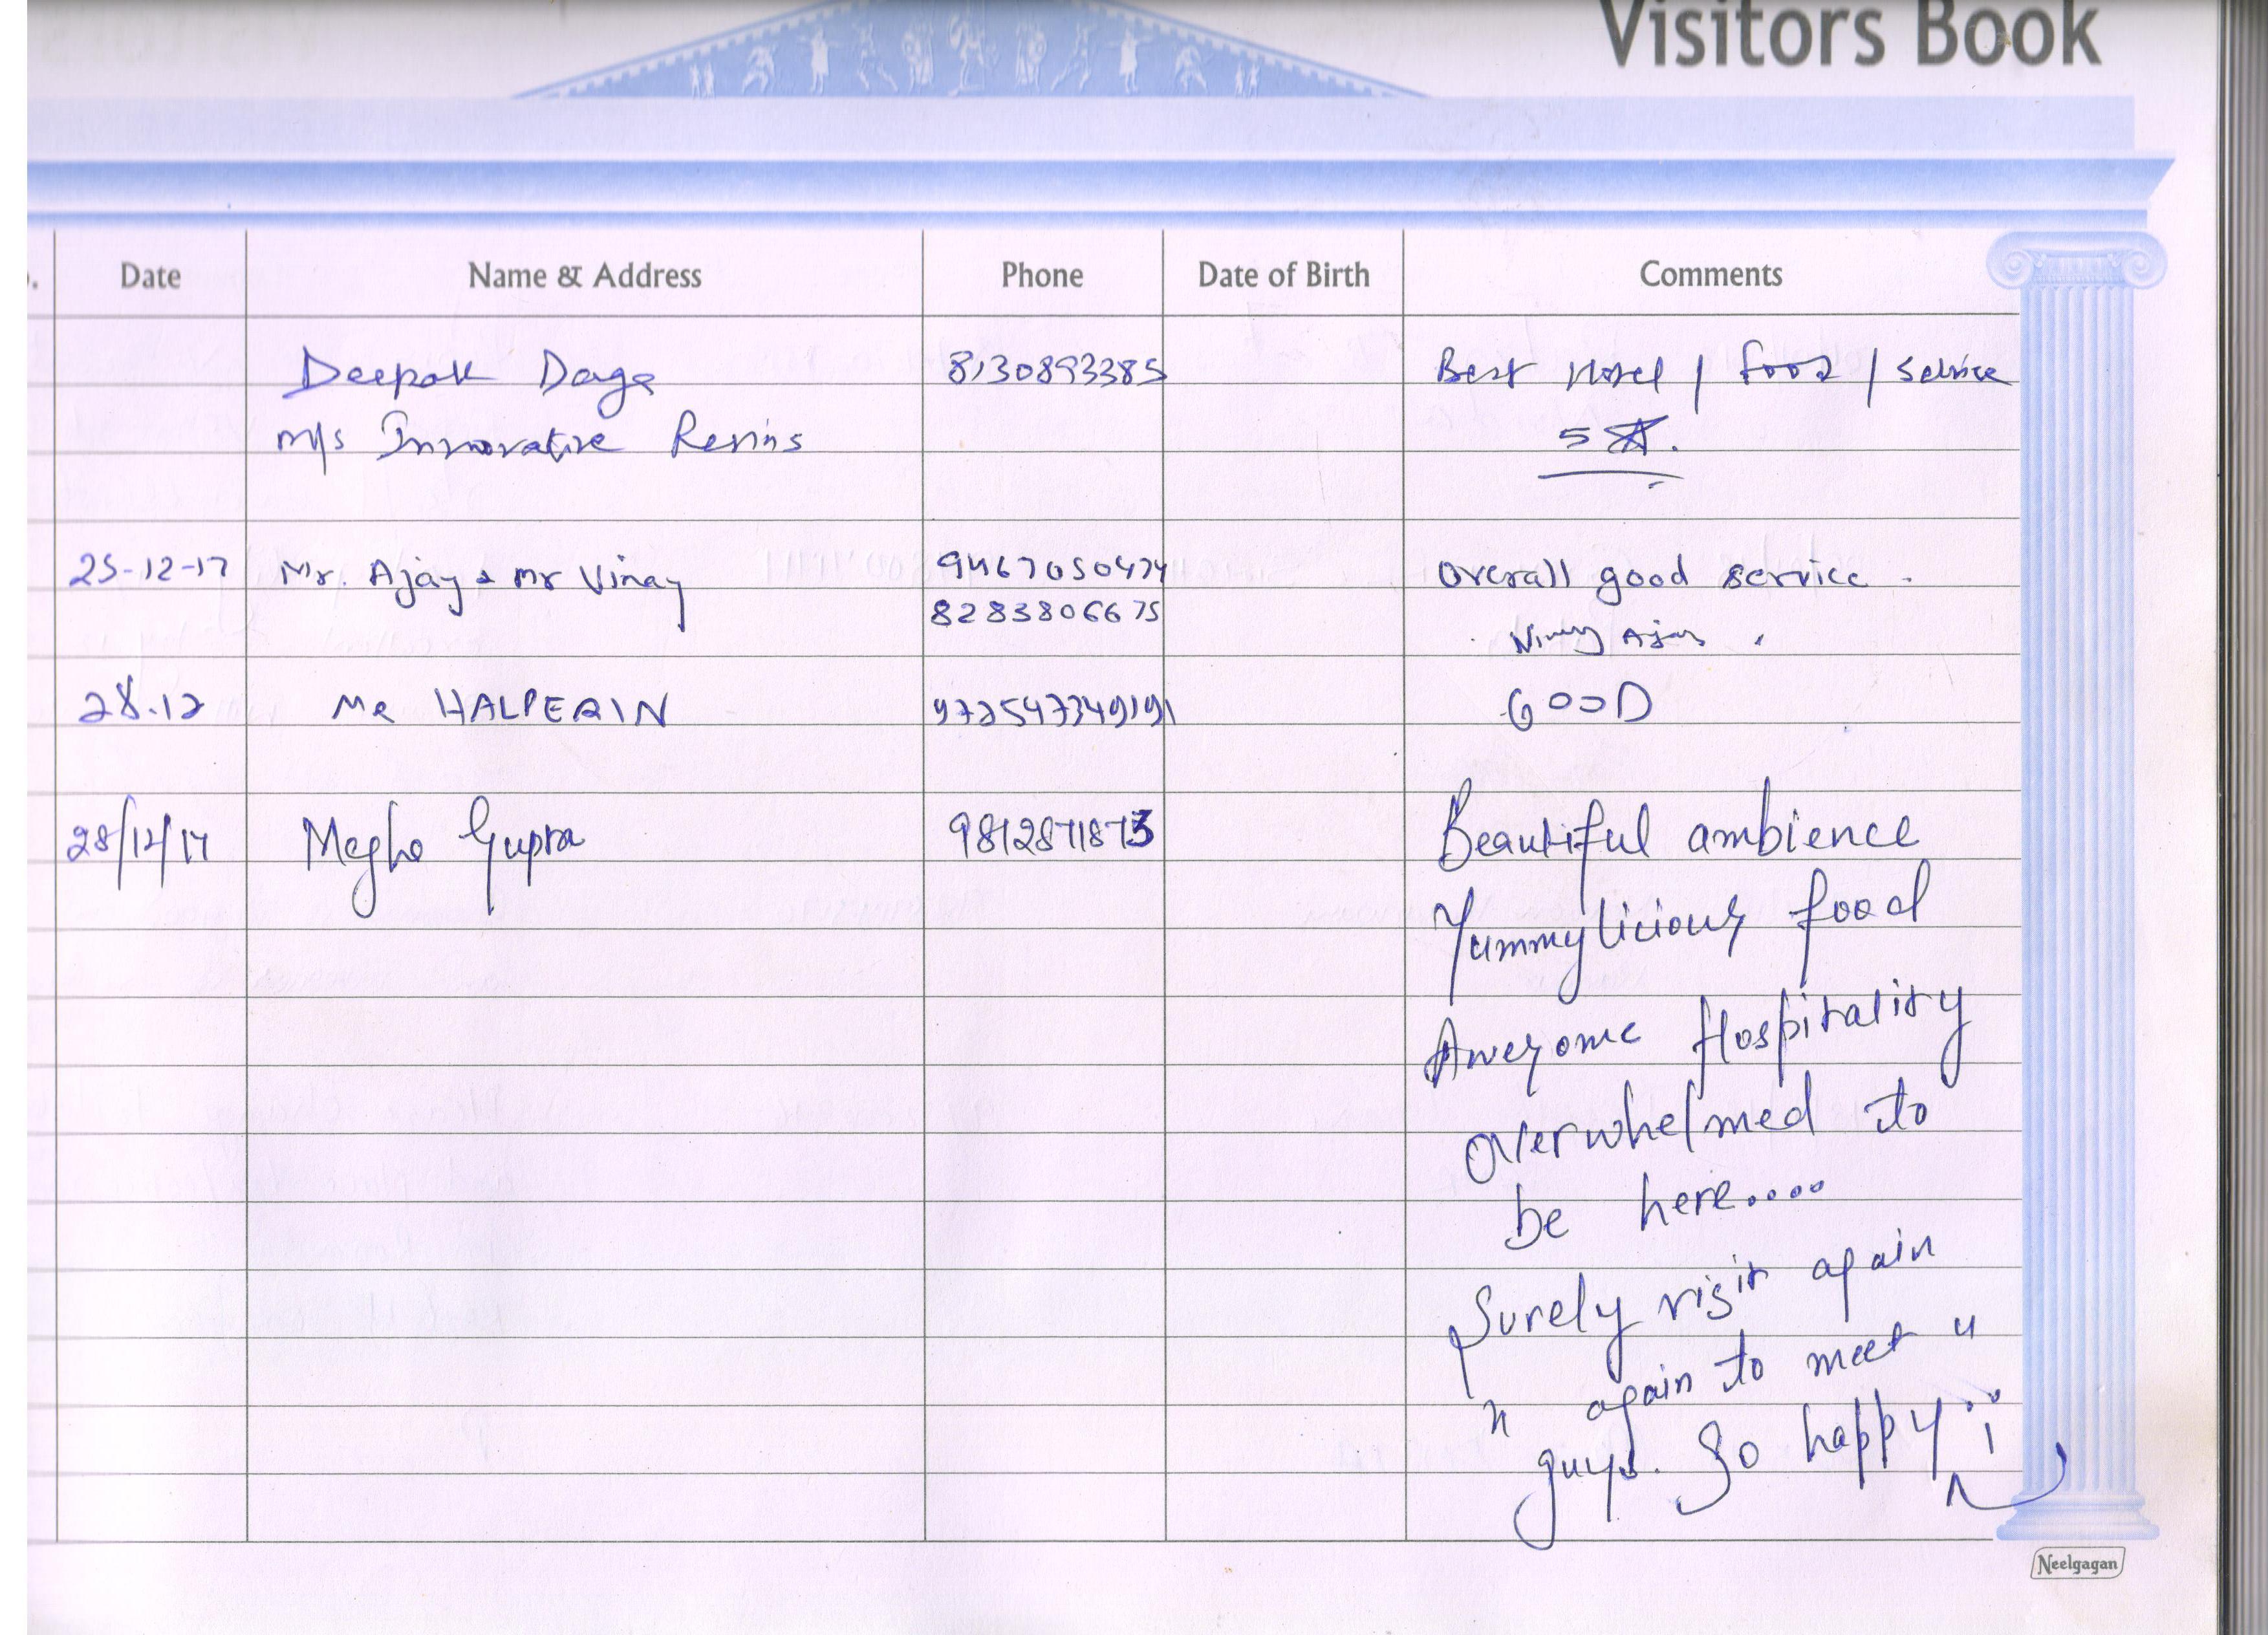 Visitors Book
Date Name & Address Phone Date of Birth Comments
Deepak Daga 8130893385 Best Hotel / food / Service
m/s Innovative Resins 5 ☆.
25-12-17 Mr. Ajay & Mr Vinay 9467050474 Overall good service.
8283806675 Vinay Ajay
28.12 MR HALPERIN 972547349191 GOOD
28/12/17 Megha Gupta 9812871873 Beautiful ambience
Yummylicious food
Awesome Hospitality
overwhelmed to
be here....
Surely visit again
n again to meet u
guys. So happy
Neelgagan